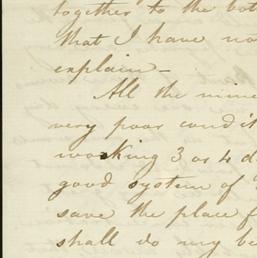 together to the bot
that I have no
explain –
All the mine
very poor condit
working 3 or 4 d
good system of
save the place f
shall do my be